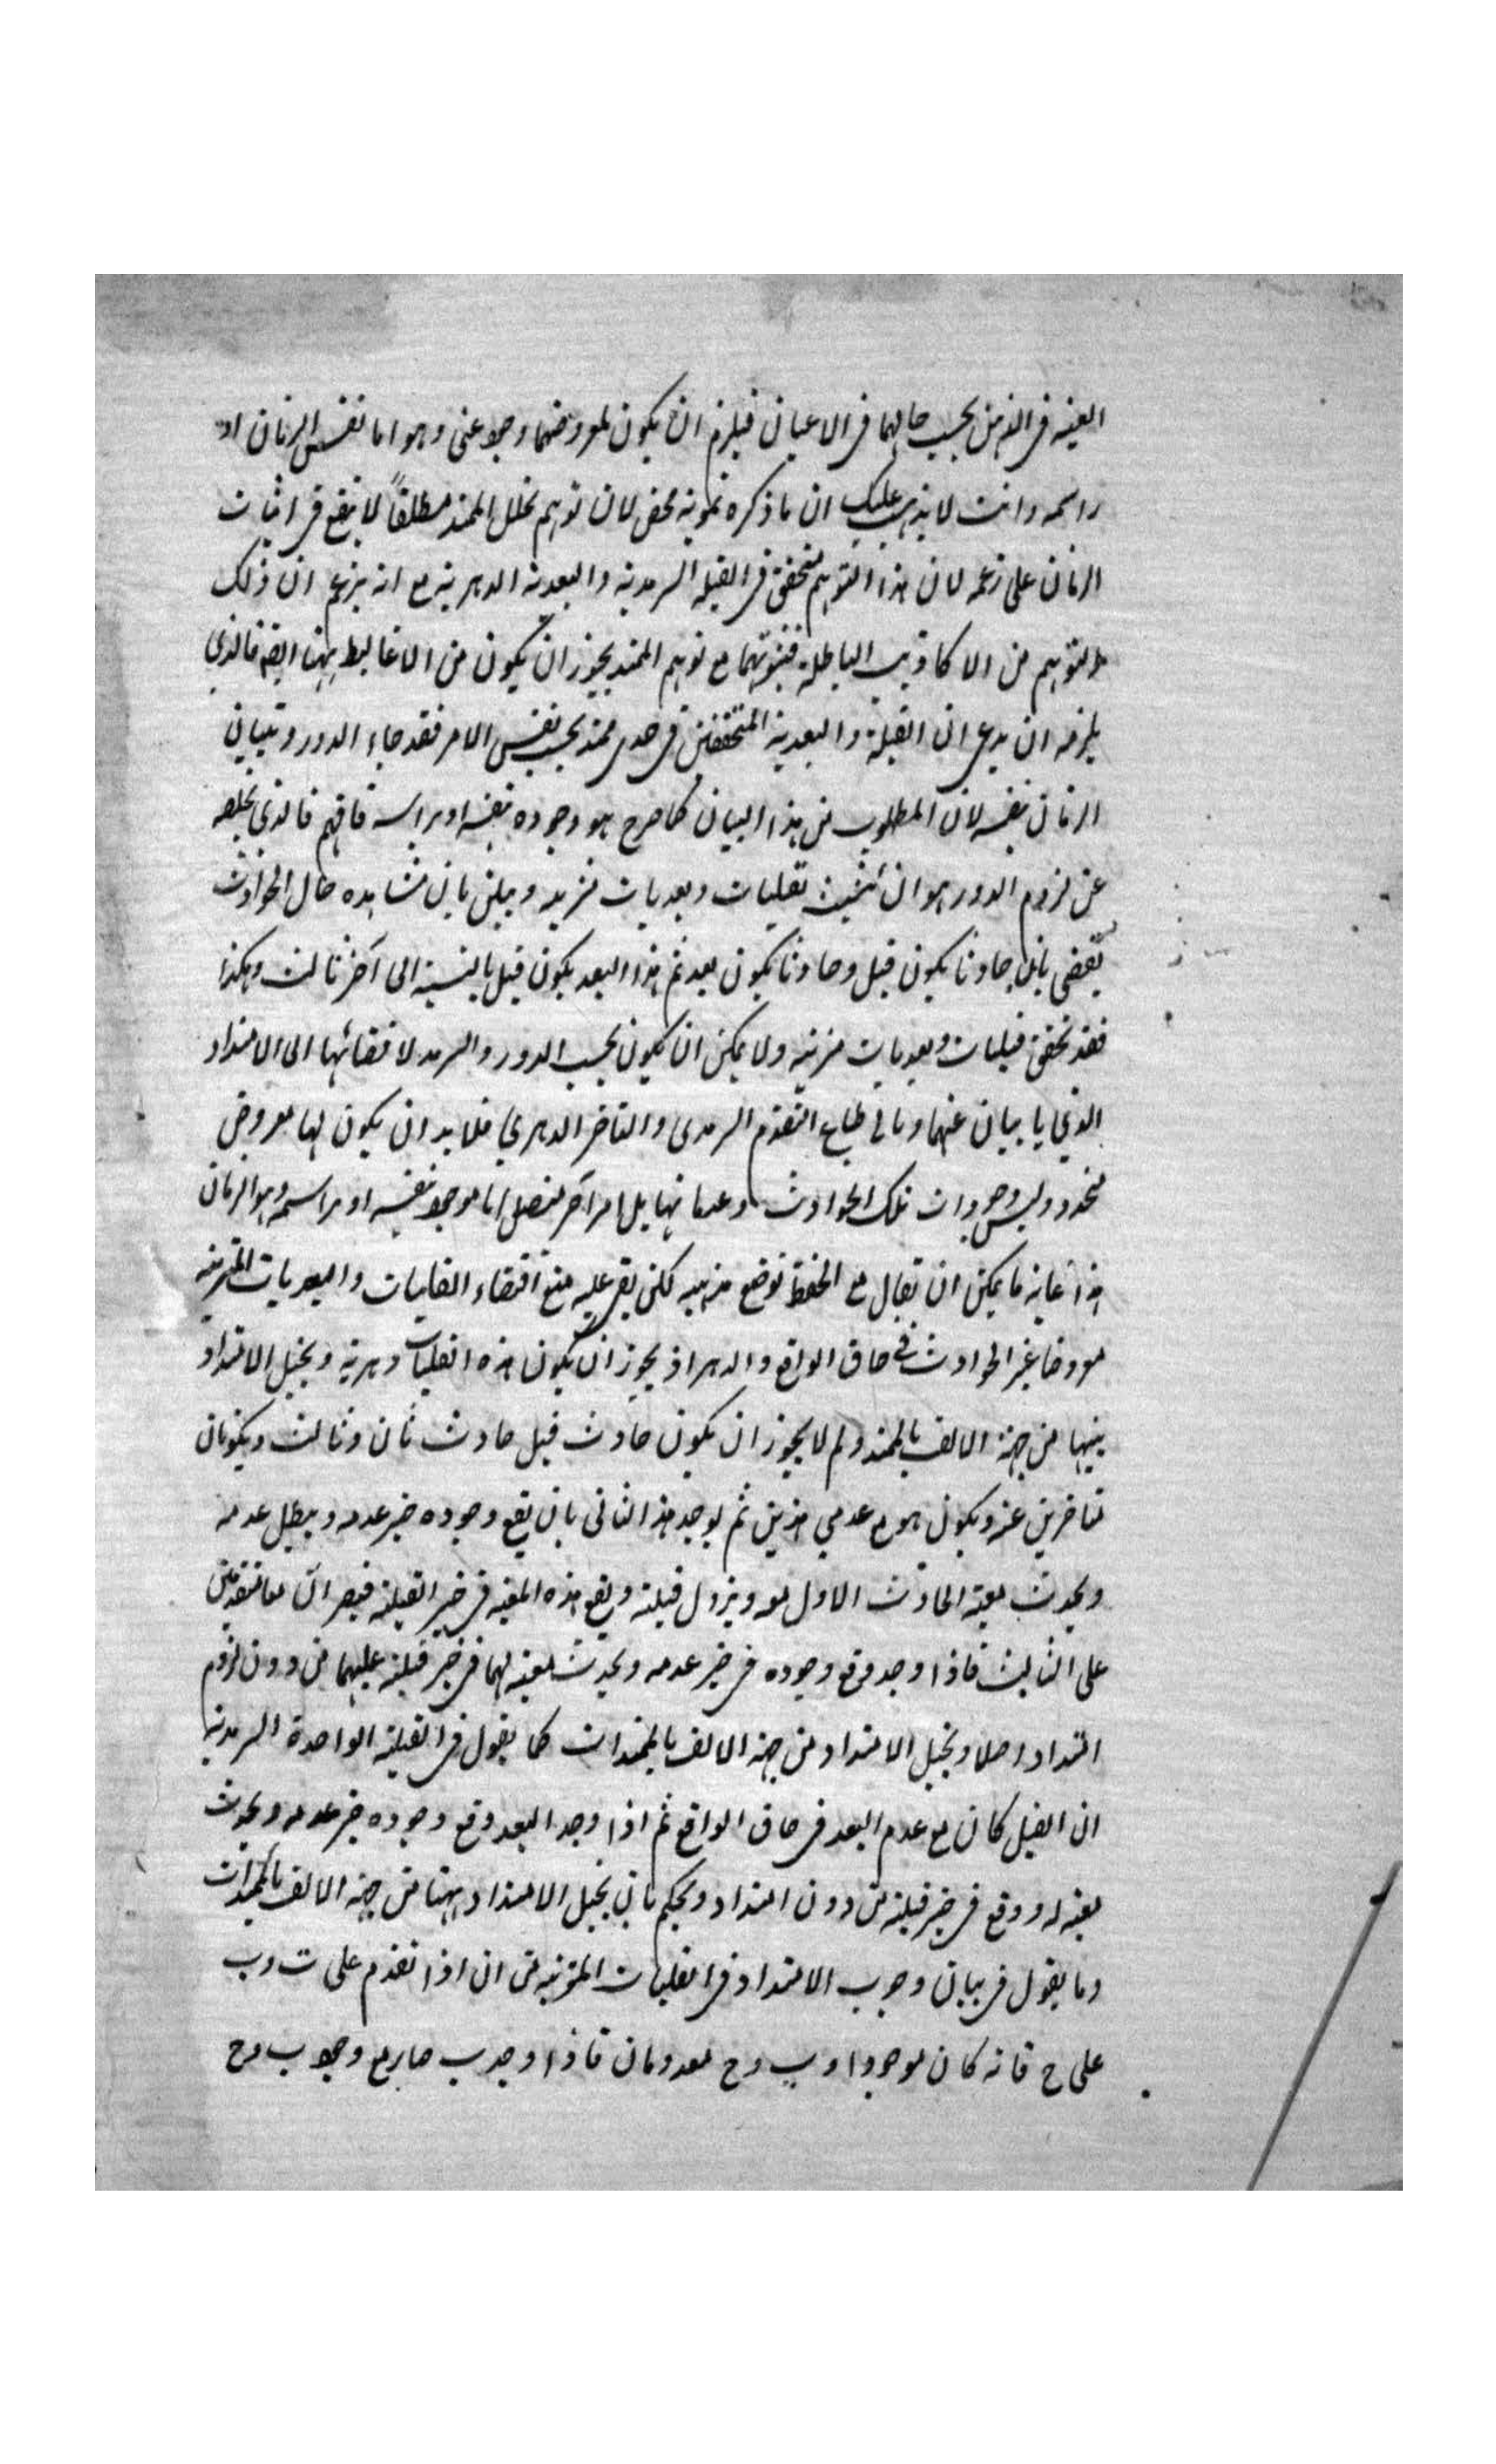 المعية في الذهن بحسب حالهما في الاعيان فيلزم ان يكون لمعروضهما وجود عيني وهو اما نفس الزمان او
راسمه وانت لا يذهب عليك ان ما ذكره تمويه محض لان توهم تخلل الممتد مطلقاً لا ينفع في اثبات
الزمان على زعمه لان هذا التوهم متحقق في القبلية السرمدية والبعدية الدهرية مع انه يزعم ان ذلك
التوهم من الاكاذيب الباطلة فثبوتهما مع توهم الممتد يجوز ان يكون من الاغاليط ههنا ايضا فالذي
يلزمه ان يدعى ان القبلية والبعدية المتحققتين في حدى ممتد بحسب نفس الامر فقد جاء الدور وتبيان
الزمان بنفسه لان المطلوب من هذا البيان كما صرح هو وجوده بنفسه او براسمه فافهم فالذي يخلصه
عن لزوم الدور هو ان يثبت قبليات وبعديات متزايدة ويبين بان مشاهده حال الحوادث
يقضى بان حادثا يكون قبل وحادثا يكون بعد ثم هذا البعد يكون قبل بالنسبة الى آخر ثالث وهكذا
فقد تحقق قبليات وبعديات مترتبة ولا يمكن ان يكون بحسب الدهر والسرمد لاقتضائها الى الامتداد
الذي يابيان عنهما وبالى طباع التقدم السرمدى والتاخر الدهري فلا بد ان يكون لها معروض
متجدد وليس وجودات تلك الحوادث وعدماتها بل امر آخر متصل اما موجود بنفسه او براسمه وهو الزمان
هذا غاية ما يمكن ان يقال مع الحفظ لوضع مذهبه لكن بقي عليه منع اقتضاء القبليات والبعديات المترتبة
معروضا غير الحوادث في حاق الواقع والدهر اذ يجوز ان يكون هذه القبليات دهرية ويخيل الامتداد
بينها من جهة الالف بالممتد ولم لا يجوز ان يكون حادث قبل حادث ثان وثالث ويكونان
متاخرين عنه ويكون هو مع عدمي هذين ثم يوجد هذا الثانى بان يقع وجوده حيز عدمه ويبطل عدمه
ويحدث معية الحادث الاول معه ويزول قبلية ويقع هذه المعية في حيز القبلية فيصير ان معا متقدمين
على الثالث فاذا وجد وقع وجوده في حيز عدمه ويحدث معية لهما في حيز قبلية عليهما من دون لزوم
امتداد اصلا ويخيل الامتداد من جهة الالف بالممتدات كما يقول في القبلية الواحدة السرمدية
ان القبل كان مع عدم البعد في حاق الواقع ثم اذا وجد البعد وقع وجوده حيز عدمه ويحدث
معية له ووقع في حيز قبلية من دون امتداد ويحكم بان يخيل الامتداد ههنا من جهة الالف بالممتدات
وما يقول في بيان وجوب الامتداد في القبليات المترتبة من ان اذا تقدم على ب وب
على ح فانه كان موجودا وب وح معدومان فاذا وجد ب صار مع وجود ب وح